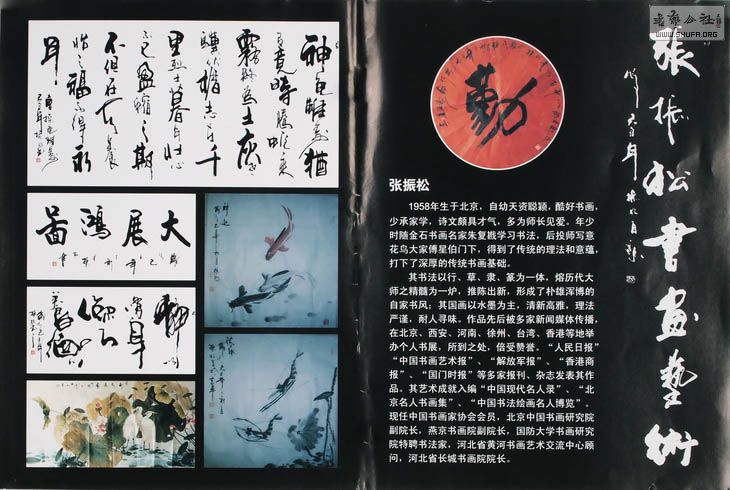 神龟雖寿猶
有竟時騰蛇乘
霧終為土灰
驥伏櫪志在千
里烈士暮年壮心
不已盈縮之期
不但在天养
怡之福可得永
年
大展鴻圖
勤
張振松書畫藝術
WWW.SHUFA.ORG
张振松
1958年生于北京，自幼天资聪颖，酷好书画，
少承家学，诗文颇具才气，多为师长见爱，年少
时随金石书画名家朱复戡学习书法，后投师写意
花鸟大家傅星伯门下，得到了传统的理法和意蕴，
打下了深厚的传统书画基础。
其书法以行、草、隶、篆为一体，熔历代大
师之精髓为一炉，推陈出新，形成了朴雄浑博的
自家书风；其国画以水墨为主，清新高雅，理法
严谨，耐人寻味。作品先后被多家新闻媒体传播，
在北京、西安、河南、徐州、台湾、香港等地举
办个人书展，所到之处，倍受赞誉。“人民日报”
“中国书画艺术报”、“解放军报”、“香港商
报”、“国门时报”等多家报刊、杂志发表其作
品。其艺术成就入编“中国现代名人录”、“北
京名人书画集”、“中国书法绘画名人博览”。
现任中国书画家协会会员，北京中国书画研究院
副院长，燕京书画院副院长，国防大学书画研究
院特聘书法家，河北省黄河书画艺术交流中心顾
问，河北省长城书画院院长。